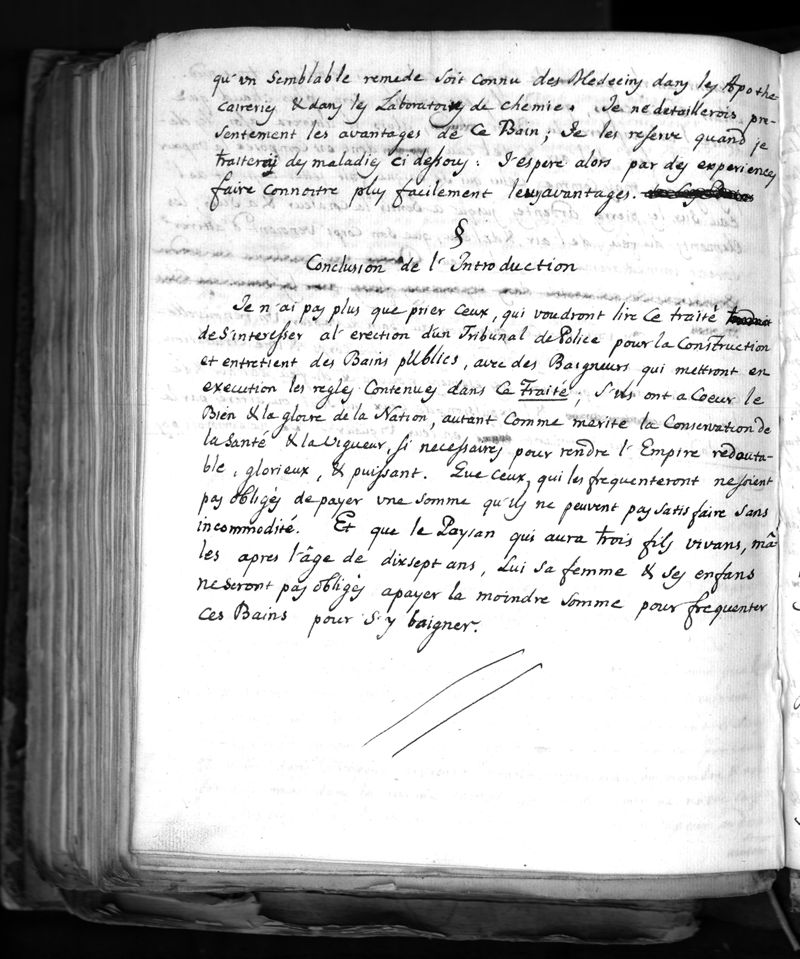 qu'un Semblable remede soit connu des Medeciny dans les Apothe
caireries & dans les Laboratoires de chemie. Je ne detaillerois pre-
sentement les avantages de Ce Bain; Je les reserve quand je
traiterai des maladies ci dessous: J'espere alors par des experiences
faire Connoitre plus facilement leurs avantages.
§
Conclusion de l'Introduction
Je n'ai pas plus que prier Ceux, qui voudront lire Ce traité
de S'interesser al' erection d'un Tribunal de Police pour la Construction
et entretient des Bains publics, avec des Baigneurs qui mettront en
execution les regles Contenues dans Ce Traité; S'ils ont a Coeur le
Bien & la gloire de la Nation, autant Comme merite la Conservation de
la Santé & la Vigueur, si necessaires pour rendre l'Empire redouta-
ble, glorieux, & puissant. Que Ceux, qui les frequenteront ne soient
pas obligés de payer une Somme qu'ils ne peuvent pas satisfaire sans
incommodité. Et que le Paysan qui aura trois fils vivans, mâ-
les apres l'âge de dixsept ans, Lui sa femme & ses enfans
ne seront pas obligés a payer la moindre Somme pour frequenter
Ces Bains pour S'y baigner.